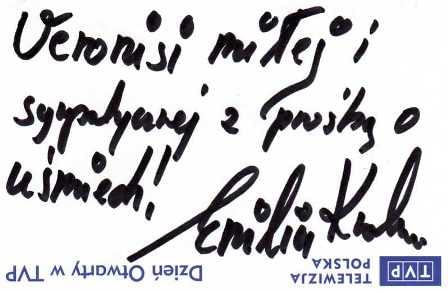 Veronisi miłej i
sympatycznej z prośbą o
uśmiech!
Emilia
Dzień Otwarty w TVP
TELEWIZJA
POLSKA
TVP